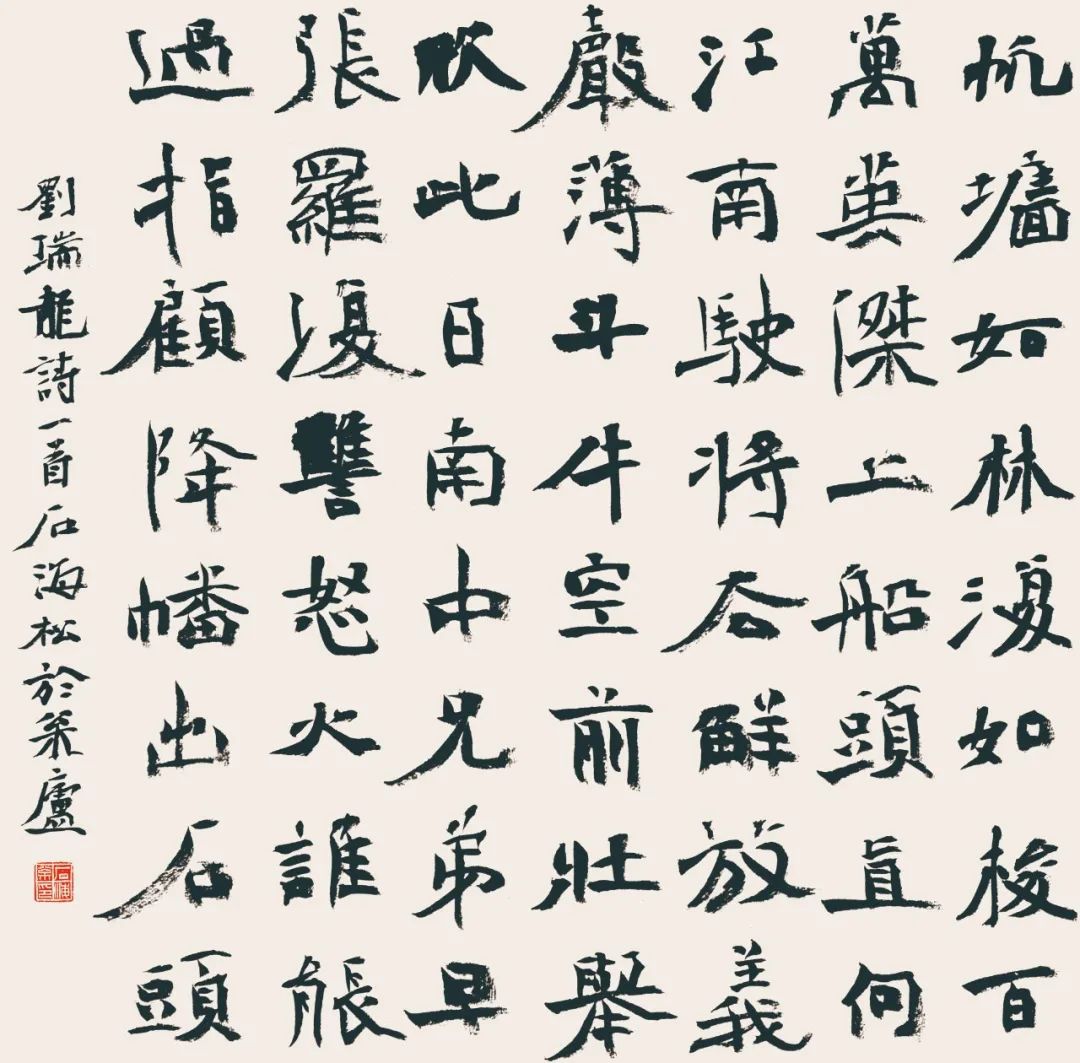 帆墻如林復如梭百
萬英傑上船頭直何
江南駛將谷鮮放義
聲薄斗牛空前壯舉
欣此日南中兄弟早
張羅復讐怒火誰能
過指顧降幡出石頭
劉瑞龍詩一首石海松於采廬